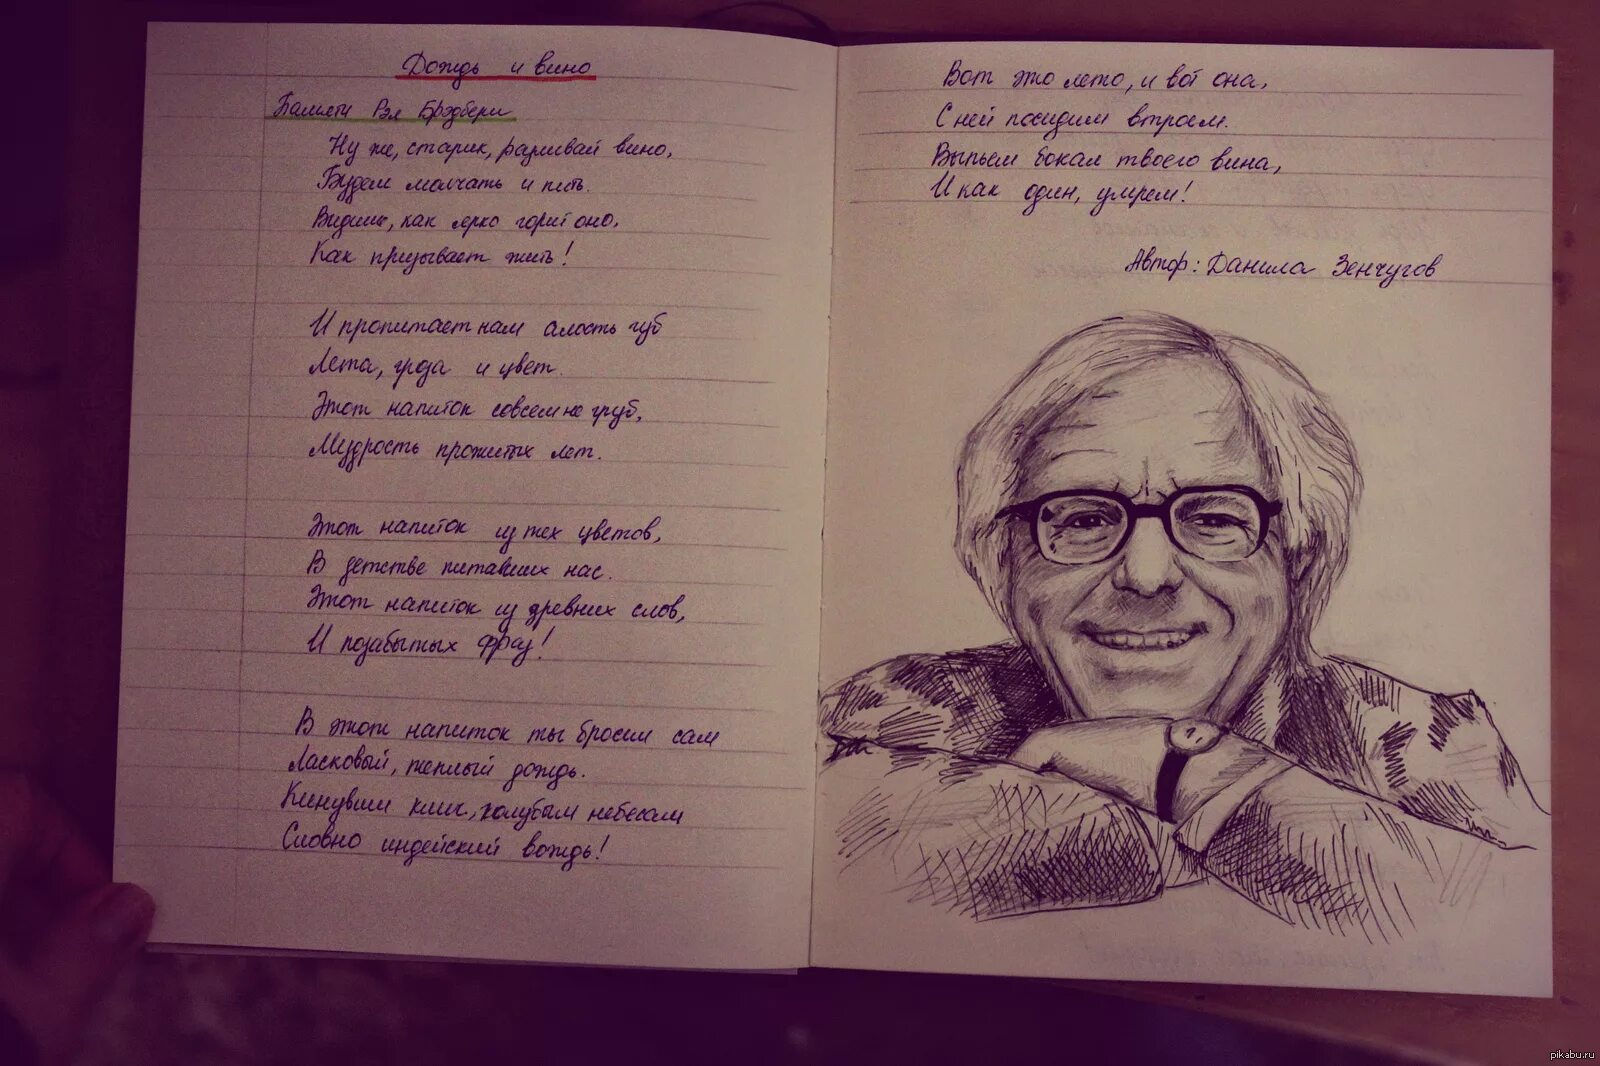 Дождь и вино
Памяти Рэя Брэдбери
Ну же, старик, разливай вино,
Будем молчать и пить.
Видишь, как ярко горит оно,
Как призывает жить!
И пропитает нам алость губ
Лета, и цвет.
Этот напиток совсем не груб,
Мудрость прожитых лет.
Этот напиток из тех цветов,
В детстве питавших нас.
Этот напиток из древних слов,
И позабытых фраз!
В этот напиток ты бросил сам
Ласковый, теплый дождь.
Кинувши клич, голубым небесам
Словно индейский вождь!
Вот это лето, и вот она,
С ней посидим втроем.
Выпьем бокал твоего вина,
И как один, умрем!
Автор: Данила Зенчугов
pikabu.ru